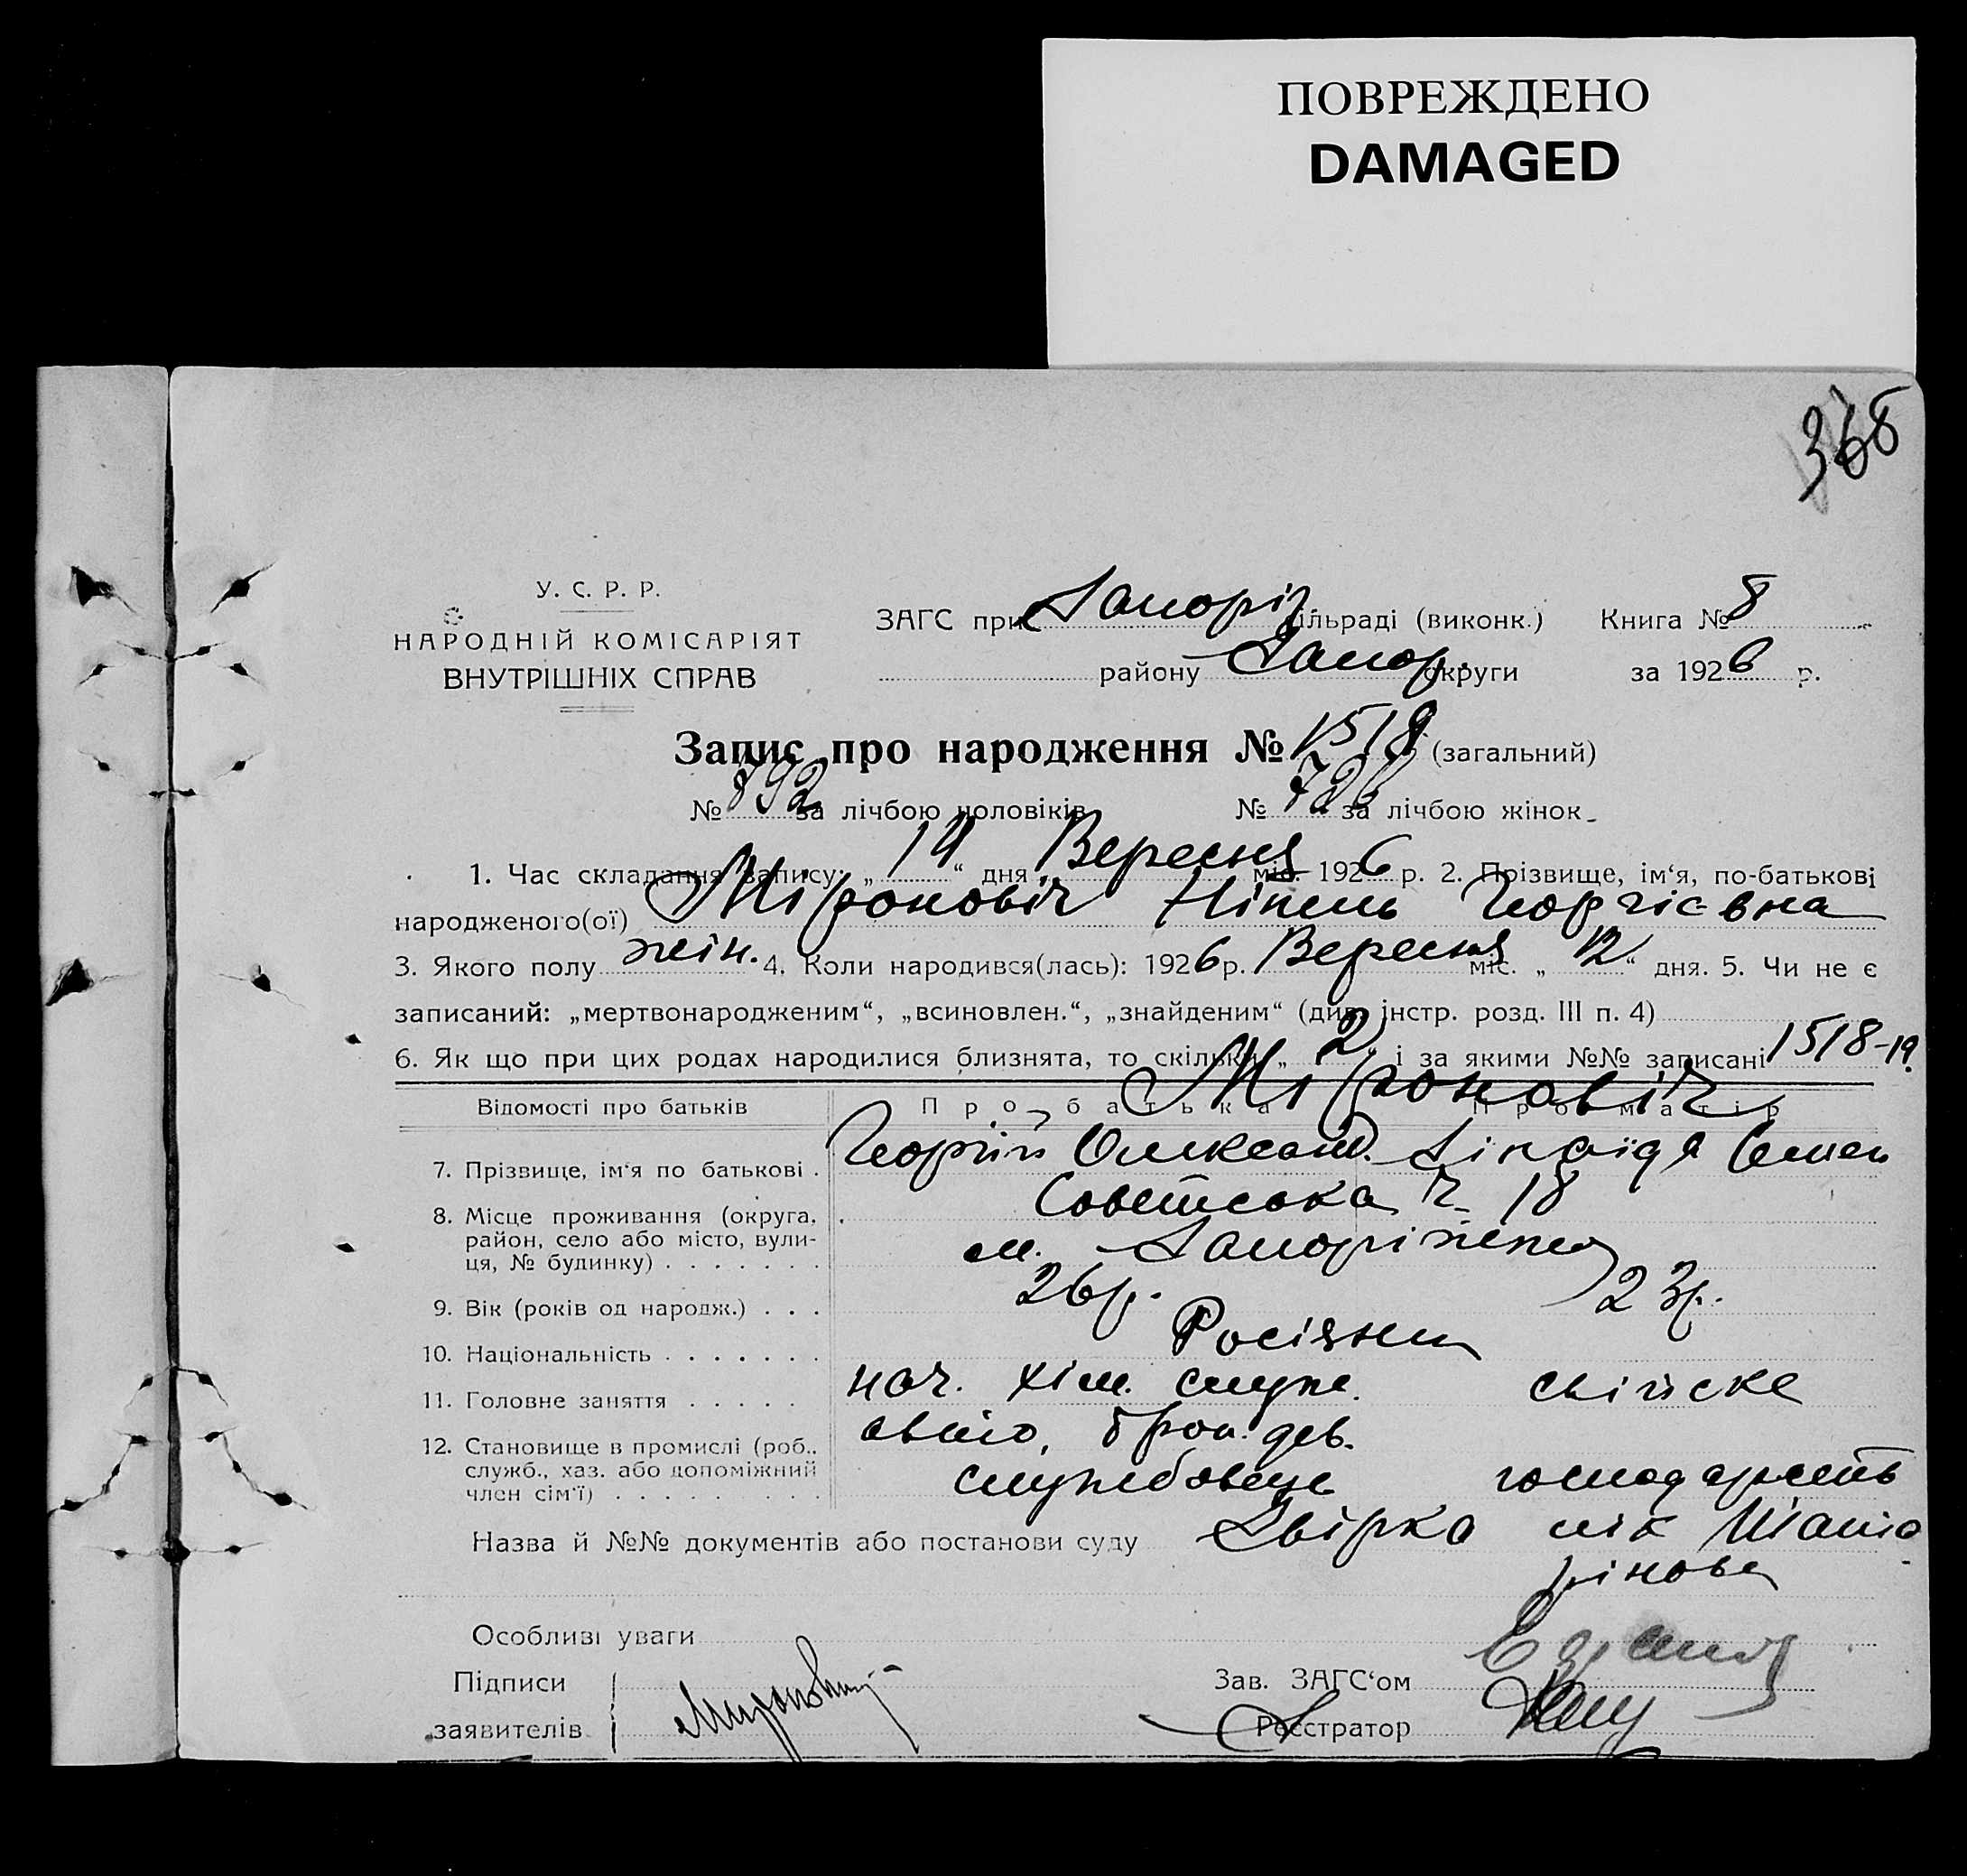 ПОВРЕЖДЕНО
DAMAGED
368
У. С. Р. Р.
НАРОДНІЙ КОМІСАРІЯТ
ВНУТРІШНІХ СПРАВ
ЗАГС при Запоріз ільраді (виконк.) Книга № 8
району Запор. округи за 1926 р.
Запис про народження № 1518 (загальний)
№ 892 за лічбою чоловіків № 726 за лічбою жінок
1. Час складання запису: „ 14 “ дня Вересня міс. 1926 р. 2. Прізвище, ім‘я, по-батькові
народженого(ої) Міронович Нінель Георгієвна
3. Якого полу жін. 4. Коли народився(лась): 1926 р. Вересня міс. „ 12 “ дня. 5. Чи не є
записаний: „мертвонародженим“, „всиновлен.“, „знайденим“ (див. інстр. розд. III п. 4)
6. Як що при цих родах народилися близнята, то скільки „ 2 “ і за якими №№ записані 1518-19
Відомості про батьків Про батька Про матір
Міронович
7. Прізвище, ім‘я по батькові . Георгій Олександ. Зінаїда Семен
8. Місце проживання (округа, Советська ч. 18
район, село або місто, вули- м. Запоріжжя
ця, № будинку) . . . . . . .
9. Вік (років од народж.) . . . 26 р. 23 р.
10. Національність . . . . . . . Росіяни
11. Головне заняття . . . . . нач. хім. служ. свійське
авіо,
12. Становище в промислі (роб.. службовець господарств
служб., хаз. або допоміжний
член сім‘ї) . . . . . . . . .
Назва й №№ документів або постанови суду
Особливі уваги
Підписи Зав. ЗАГС‘ом
заявителів Миронович Реєстратор